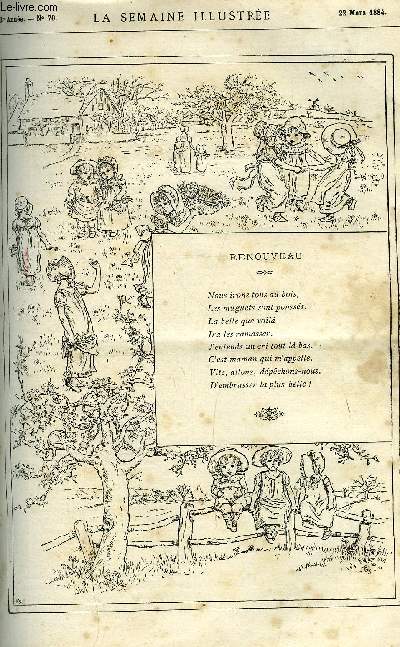 Le-livre.com
Année. — N° 70.
LA SEMAINE ILLUSTRÉE
22 Mars 1884.
RENOUVEAU
Nous irons tous au bois,
Les muguets sont poussés.
La belle que voilà
Ira les ramasser.
J'entends un cri tout là-bas.
C'est maman qui m'appelle.
Vite, allons, dépêchons-nous.
D'embrasser la plus belle !